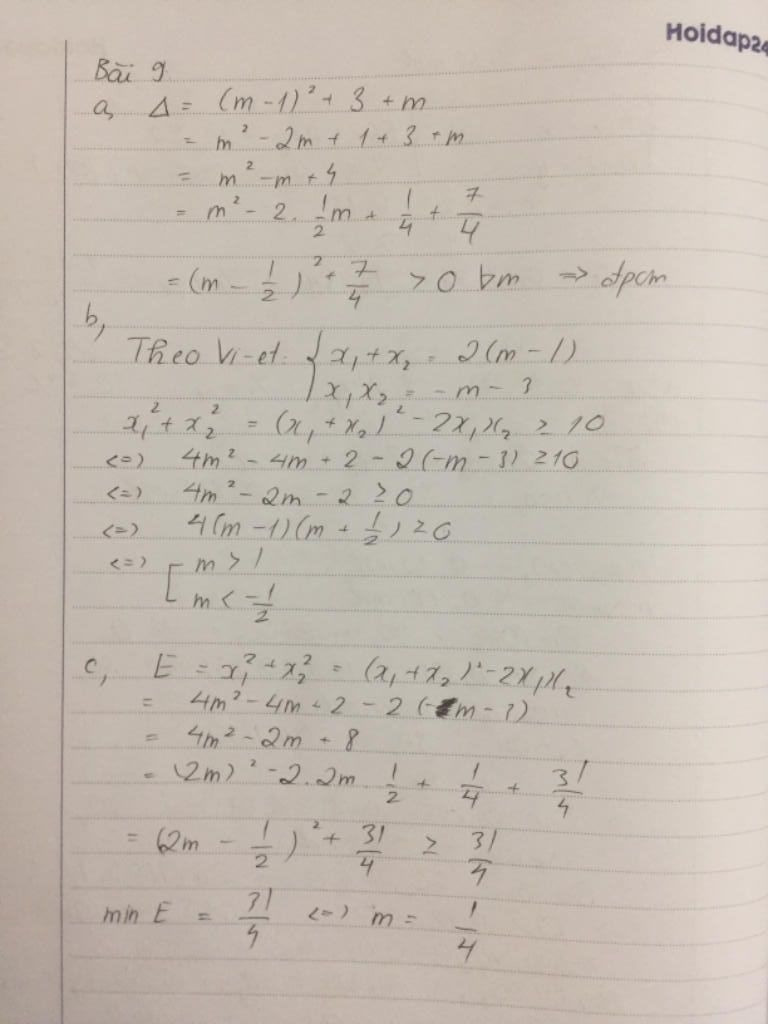 Hoidap24
Bài 9
a, Δ = (m - 1)² + 3 + m
= m² - 2m + 1 + 3 + m
= m² - m + 4
= m² - 2. 1/2 m + 1/4 + 7/4
= (m - 1/2)² + 7/4 > 0 ∀m => đpcm
b,
Theo Vi-et: { x₁ + x₂ = 2(m - 1)
x₁x₂ = - m - 3
x₁² + x₂² = (x₁ + x₂)² - 2x₁x₂ ≥ 10
<=> 4m² - 4m + 2 - 2(-m - 3) ≥ 10
<=> 4m² - 2m - 2 ≥ 0
<=> 4(m - 1)(m + 1/2) ≥ 0
<=> [ m > 1
m < -1/2
c, E = x₁² + x₂² = (x₁ + x₂)² - 2x₁x₂
= 4m² - 4m + 2 - 2(-m - 3)
= 4m² - 2m + 8
= (2m)² - 2.2m. 1/2 + 1/4 + 31/4
= (2m - 1/2)² + 31/4 ≥ 31/4
min E = 31/4 <=> m = 1/4